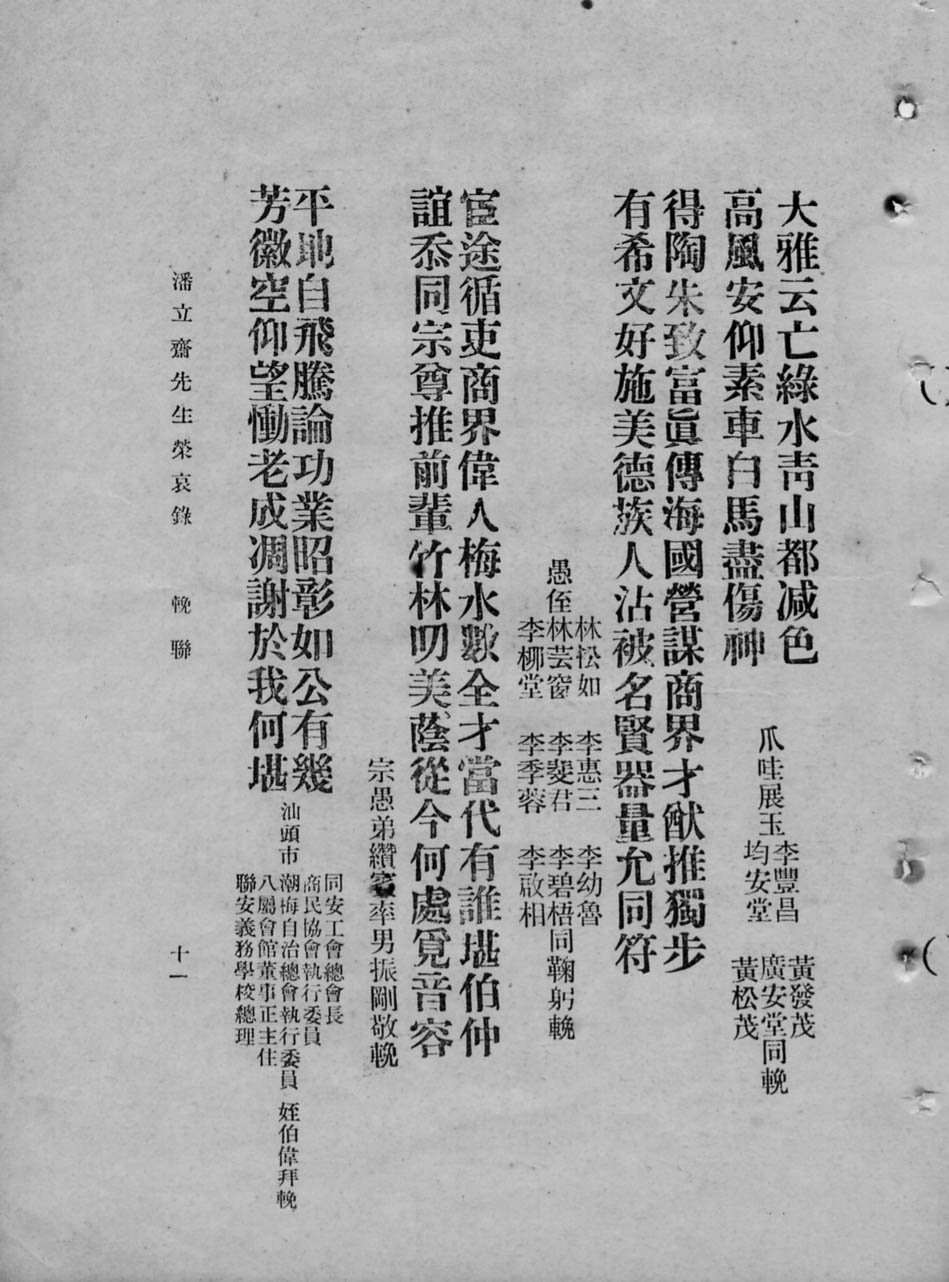 大雅云亡綠水靑山都减色
高風安仰素車白馬盡傷神
爪哇展玉
李豐昌
均安堂
黃發茂
廣安堂同輓
黃松茂
得陶朱致富眞傳海國營謀商界才猷推獨步
有希文好施美德蔟人沾被名賢器量允同符
愚侄
林松如
林芸窗
李柳堂
李惠三
李斐君
李季蓉
李幼魯
李碧梧同鞠躬輓
李啟相
宦途循吏商界偉人梅水數全才當代有誰堪伯仲
誼忝同宗尊推前輩竹林叨美蔭從今何處覓音容
宗愚弟纘賓率男振剛敬輓
平地自飛騰論功業昭彰如公有幾
芳徽空仰望慟老成凋謝於我何堪
汕頭市
同安工會總會長
商民協會執行委員
潮梅自治總會執行委員
八屬會館董事正主任
聯安義務學校總理
姪伯偉拜輓
潘立齋先生榮哀錄 輓聯 十一